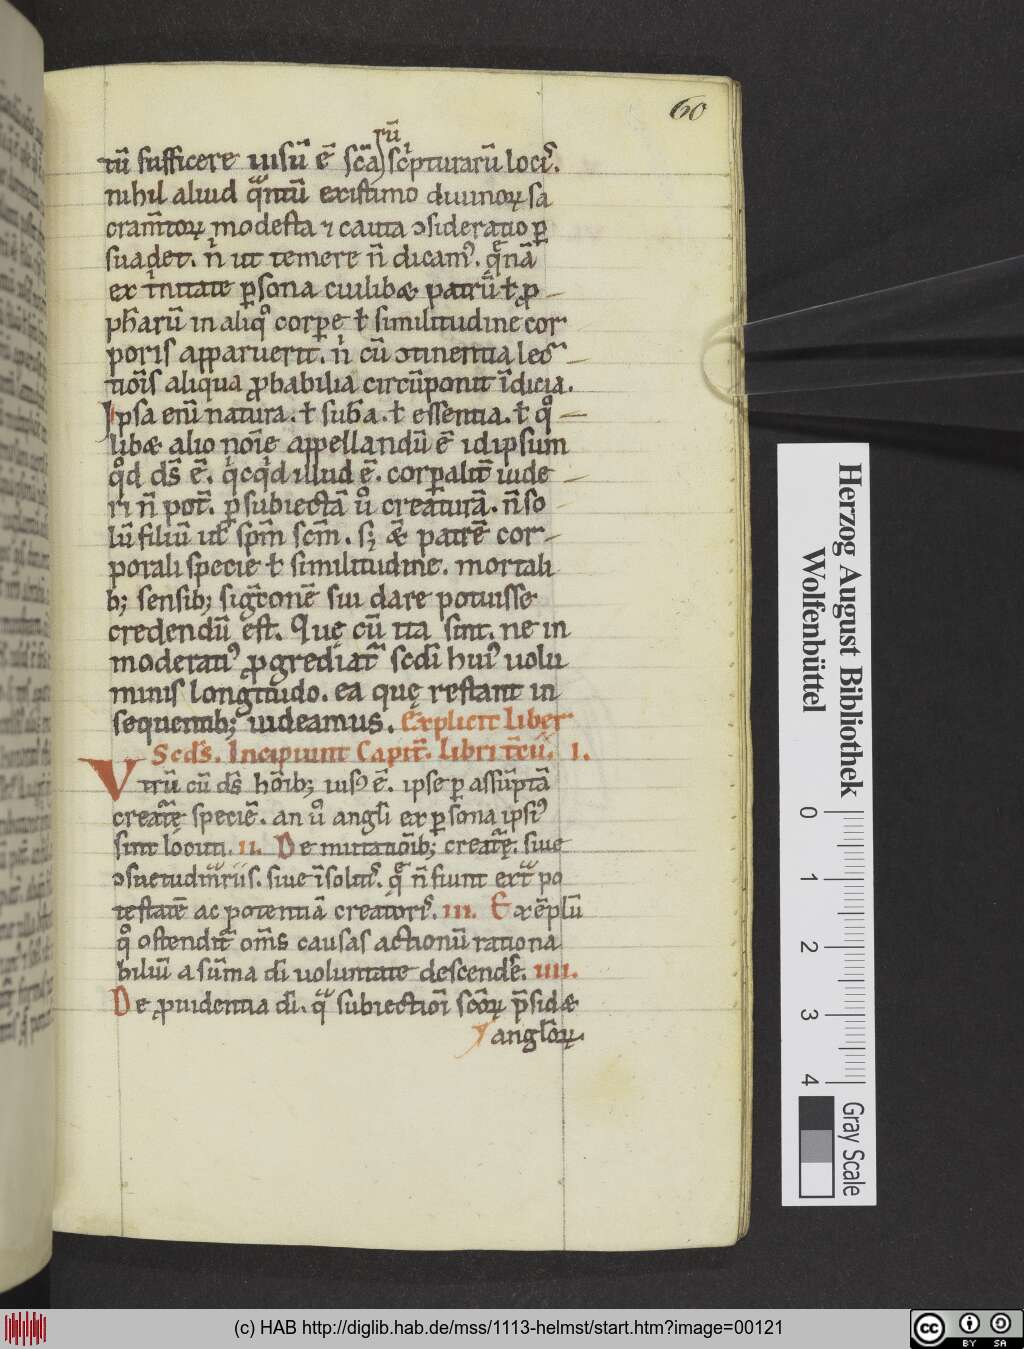 60
rū
tū sufficere uisū ē scā scͥpturarū locis.
nihil aliud qͣntū existimo diuinoꝝ sa
cram̄toꝝ modesta ⁊ cauta ↄsideratio ꝑ
suadet. nͥ ut temere n̄ dicamꝰ. qͣnā
ex tͥnitate ꝑsona cuilibæ patrū ł ꝓ
ph̄arū in aliqͦ corpe ł similitudine cor
poris apparuerit. nͥ cū ↄtinentia lec
tiōis aliqua ꝓbabilia circūponit īdicia.
Ipsa enī natura. ł suba. ł essentia. ł qͦ
libæ alio noīe appellandū ē idipsum
qͦd ds̄ ē. qͥcqͥd illud ē. corꝑalit̄ uide
ri n̄ pot̄. ꝑ subiectā uͦ creaturā. n̄ so
lū filiū ul̄ spm̄ scm̄. sꝫ æ patrē cor
porali specie ł similitudine. mortali
bꝫ sensibꝫ sig̅tionē sui dare potuisse
credendū est. Quę cū ita sint. ne in
moderatiꝰ ꝓgrediat̄ scdi huiꝰ uolu
minis longitudo. ea quę restant in
sequentibꝫ uideamus. Explicit liber
Scds. Incipiunt Capit̄. libri t̄cii. I.
Vtrū cū ds̄ hōibꝫ uisꝰ ē. ipse ꝑ assūptā
creat̄ę speciē. an uͦ angli ex ꝑsona ipsiꝰ
sint locuti. II. De mutatiōibꝫ creat̄ę. siue
ↄsuetudinͣriis. siue īsolitis. qͣ n̄ fiunt extͣ po
testatē ac potentiā creatoris. III. Exēplū
qͦ ostendit̄ om̄s causas actionū rationa
biliū a sūma di uoluntate descende. IIII.
De ꝓuidentia di. qͣ subiectiōi scōꝝ p̄sidæ
angloꝝ.
Herzog August Bibliothek
Wolfenbüttel
0 1 2 3 4
Gray Scale
(c) HAB http://diglib.hab.de/mss/1113-helmst/start.htm?image=00121
cc BY SA